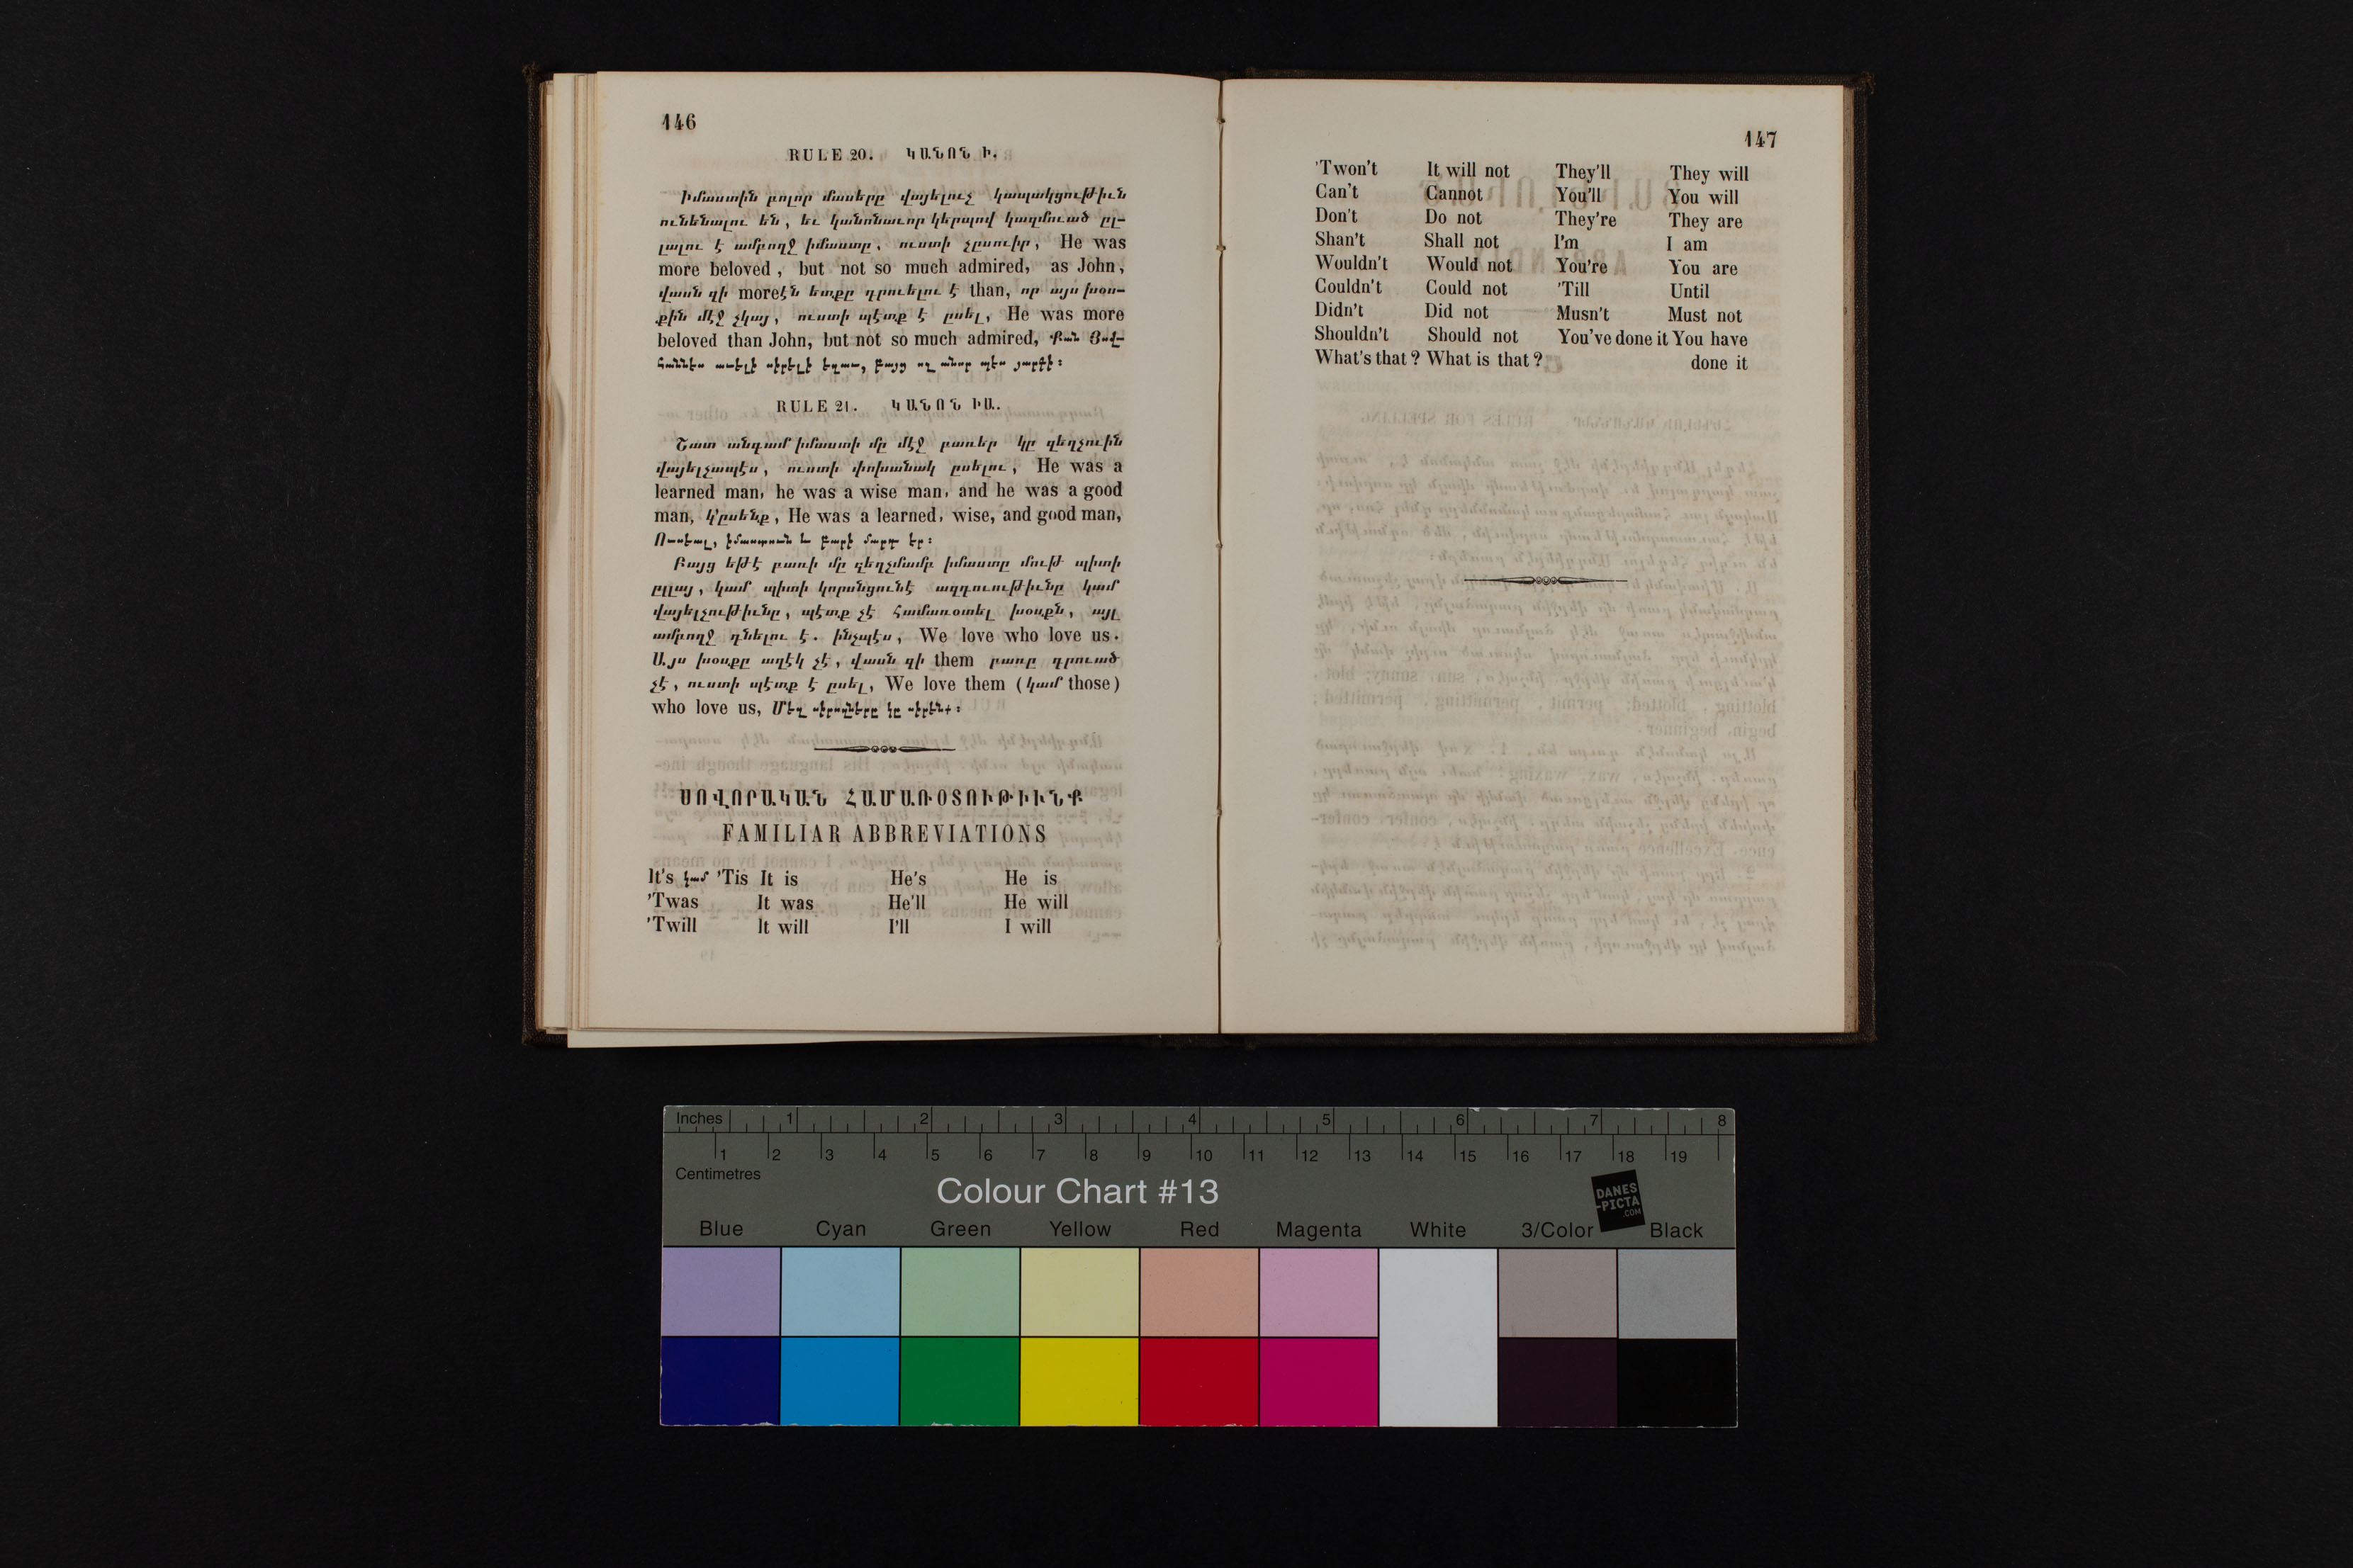 146
RULE 20. ԿԱՆՈՆ Ի.
Իմաստին բոլոր մասերը վայելուչ կապակցութիւն
ունենալու են, եւ կանոնաւոր կերպով կազմուած ըլ-
լալու է ամբողջ իմաստը. ուստի չըսուիր, He was
more beloved, but not so much admired, as John,
վասն զի moreէն ետքը դրուելու է than, որ այս խօս-
քին մէջ չկայ, ուստի պէտք է ըսել, He was more
beloved than John, but not so much admired, Քան Յով-
հաննէս աւելի սիրելի եղաւ, բայց ոչ անոր պէս յարգի:
RULE 21. ԿԱՆՈՆ ԻԱ.
Շատ անգամ իմաստի մը մէջ բառեր կը զեղչուին
վայելչապէս, ուստի փոխանակ ըսելու, He was a
learned man, he was a wise man, and he was a good
man, կ'ըսենք, He was a learned, wise, and good man,
Ուսեալ, իմաստուն և բարի մարդ էր:
Բայց եթէ բառի մը զեղչմամբ իմաստը մութ պիտի
ըլլայ, կամ պիտի կորսնցունէ ազդուութիւնը կամ
վայելչութիւնը, պէտք չէ համառօտել խօսքն, այլ
ամբողջ դնելու է. ինչպէս, We love who love us.
Այս խօսքը աղէկ չէ, վասն զի them բառը դրուած
չէ, ուստի պէտք է ըսել, We love them (կամ those)
who love us, Մեզ սիրողները կը սիրենք:
ՍՈՎՈՐԱԿԱՆ ՀԱՄԱՌՕՏՈՒԹԻՒՆՔ
FAMILIAR ABBREVIATIONS
It's կամ 'Tis It is He's He is
'Twas It was He'll He will
'Twill It will I'll I will
147
'Twon't It will not They'll They will
Can't Cannot You'll You will
Don't Do not They're They are
Shan't Shall not I'm I am
Wouldn't Would not You're You are
Couldn't Could not 'Till Until
Didn't Did not Musn't Must not
Shouldn't Should not You've done it You have
What's that? What is that? done it
Inches 1 2 3 4 5 6 7 8
1 2 3 4 5 6 7 8 9 10 11 12 13 14 15 16 17 18 19
Centimetres
Colour Chart #13
DANES
-PICTA
.COM
Blue Cyan Green Yellow Red Magenta White 3/Color Black